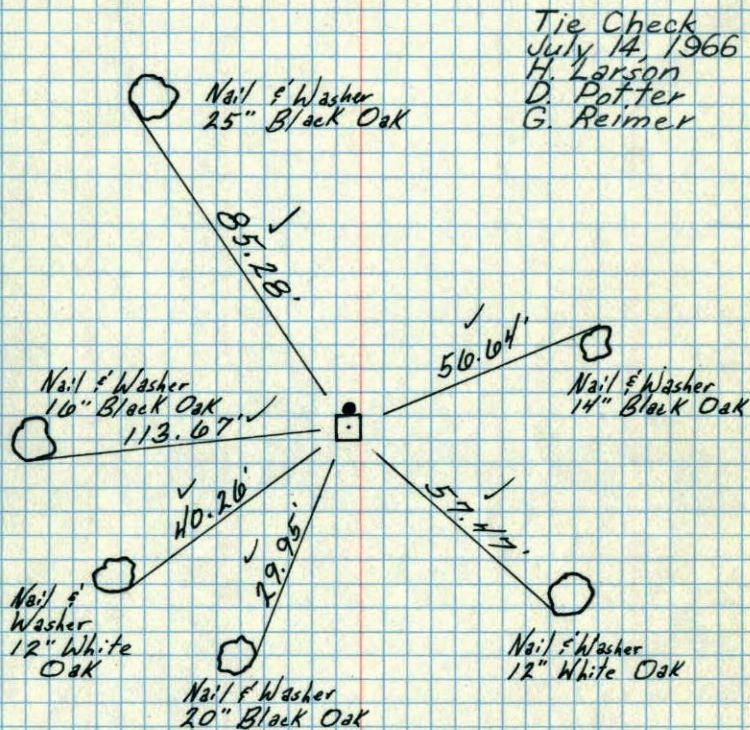 Tie Check
July 14, 1966
H. Larson
D. Potter
G. Reimer
Nail & Washer
25" Black Oak
85.28' ✓
56.64' ✓
Nail & Washer
14" Black Oak
Nail & Washer
16" Black Oak
113.67' ✓
40.26' ✓
29.95' ✓
57.47' ✓
Nail &
Washer
12" White
Oak
Nail & Washer
12" White Oak
Nail & Washer
20" Black Oak